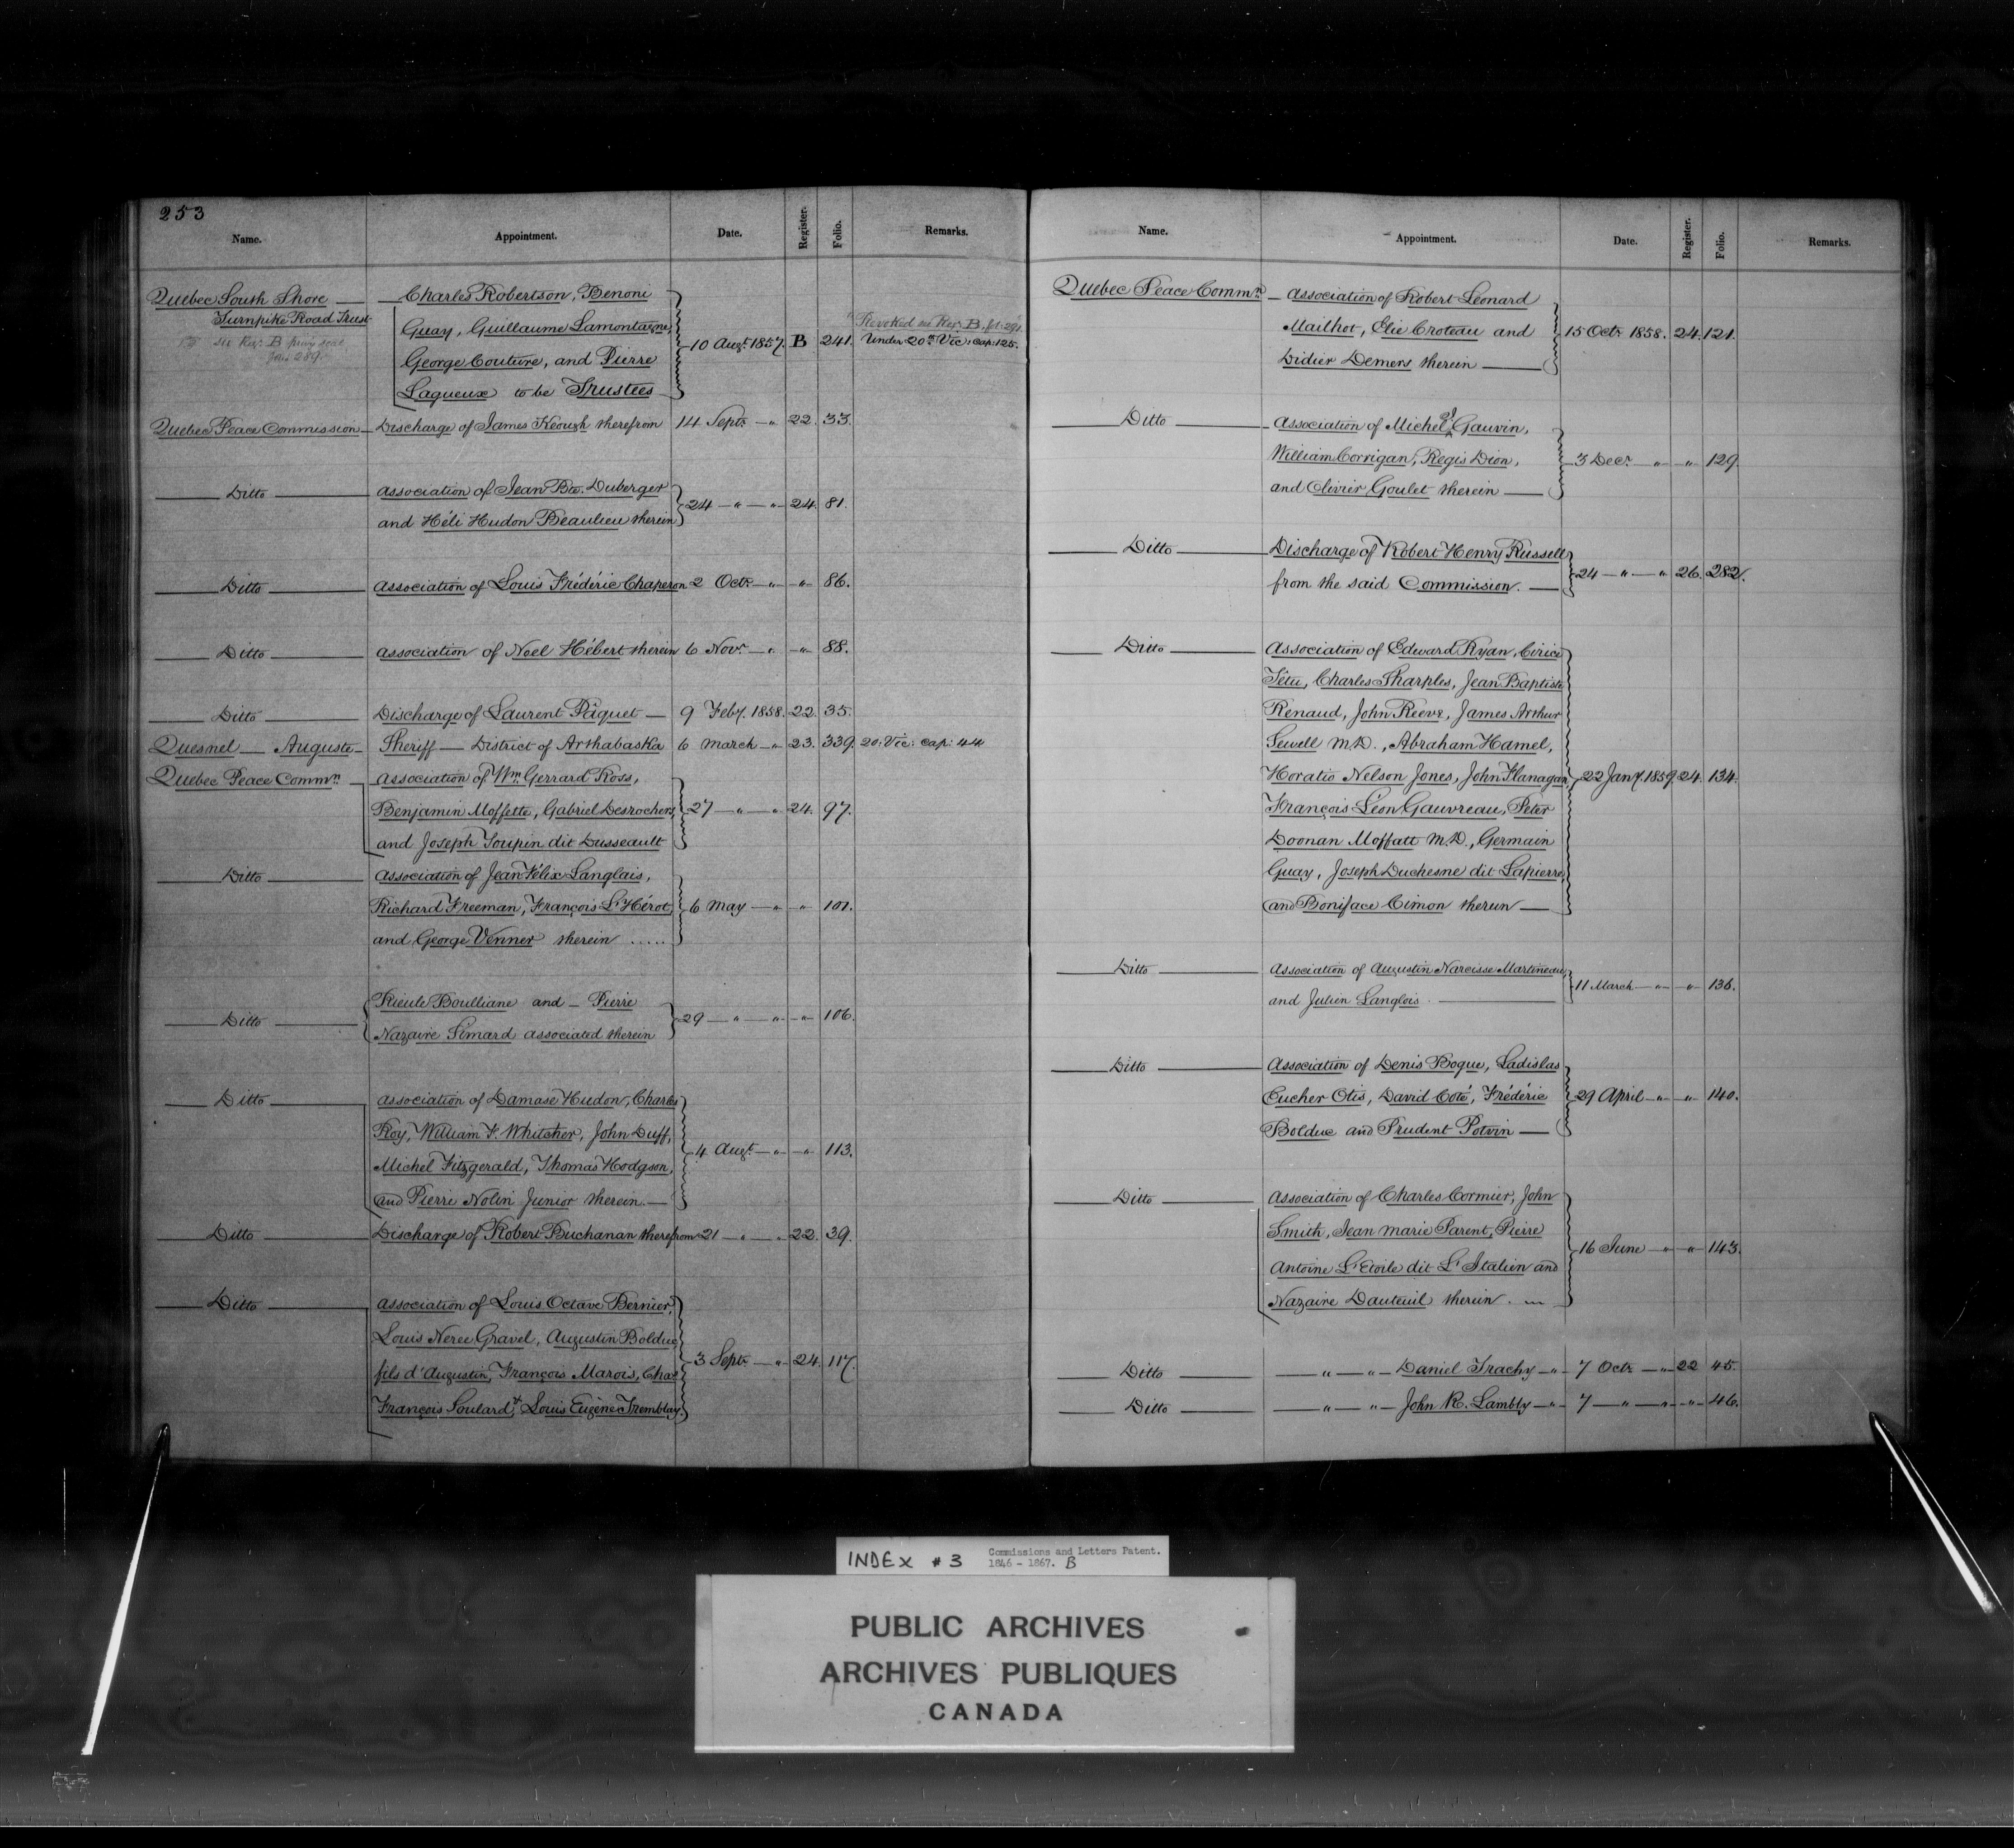 253
Name. Appointment. Date. Register. Folio. Remarks.
Quebec South Shore — Charles Robertson, Benoni
Turnpike Road Trust Guay, Guillaume Lamontagne,
see Reg. B privy seal
folio 289.
George Couture, and Pierre
Laqueux to be Trustees
10 Augt. 1857. B 241. Revoked see Reg. B. fol. 291.
Under 20th Vic: cap: 125.
Quebec Peace Commission — Discharge of James Keough therefrom 14 Septr. — " 22. 33.
Ditto — Association of Jean Bte. Duberger
and Héli Hudon Beaulieu therein 24 — " — " 24. 81.
Ditto — Association of Louis Frédéric Chaperon 2 Octr. — " — " 86.
Ditto — Association of Noel Hébert therein 6 Novr. — " — " 88.
Ditto — Discharge of Laurent Pâquet — 9 Feby. 1858. 22. 35.
Quesnel — Auguste — Sheriff — District of Arthabaska 6 March — " 23. 339. 20: Vic: cap: 44
Quebec Peace Commn. — Association of Wm. Gerrard Ross,
Benjamin Moffette, Gabriel Desrochers, 27 — " — " 24. 97.
and Joseph Toupin dit Dusseault
Ditto — Association of Jean Félix Langlais,
Richard Freeman, François L'Hérot, 6 May — " — " 101.
and George Venner therein .....
Ditto — Rieule Boulliane and — Pierre
Nazaire Simard associated therein 29 — " — " — " 106.
Ditto — Association of Damase Hudon, Charles
Roy, William F. Whitcher, John Duff,
Michel Fitzgerald, Thomas Hodgson, 4 Augt. — " — " 113.
and Pierre Nolin Junior therein. —
Ditto — Discharge of Robert Buchanan therefrom 21 — " — " 22. 39.
Ditto — Association of Louis Octave Bernier,
Louis Neree Gravel, Augustin Bolduc
fils d'Augustin, François Marois, Chas. 3 Septr. — " 24. 117.
François Soulard, & Louis Eugène Tremblay.
Name. Appointment. Date. Register. Folio. Remarks.
Quebec Peace Commn. — Association of Robert Leonard
Mailhot, Elie Croteau and 15 Octr. 1858. 24. 121.
Didier Demers therein —
Ditto — Association of Michel Gauvin,
William Corrigan, Regis Dion, 3 Decr. — " — " 129.
and Olivier Goulet therein —
Ditto — Discharge of Robert Henry Russell
from the said Commission. — 24 — " — " 26. 282.
Ditto — Association of Edward Ryan, Cirice
Têtu, Charles Sharples, Jean Baptiste
Renaud, John Reeve, James Arthur
Sewell M.D., Abraham Hamel,
Horatio Nelson Jones, John Flanagan, 22 Jany. 1859. 24. 134.
François Léon Gauvreau, Peter
Doonan Moffatt M.D., Germain
Guay, Joseph Duchesne dit Lapierre,
and Boniface Cimon therein —
Ditto — Association of Augustin Narcisse Martineau
and Julien Langlois. 11 March — " — " 136.
Ditto — Association of Denis Bogue, Ladislas
Eucher Otis, David Coté, Frédéric 29 April — " — " 140.
Bolduc and Prudent Potvin —
Ditto — Association of Charles Cormier, John
Smith, Jean Marie Parent, Pierre
Antoine L'Etoile dit L'Italien and 16 June — " — " 143.
Nazaire Dauteuil therein.
Ditto — " — " — Daniel Trachy — " 7 Octr. — " 22 45.
Ditto — " — " — John R. Lambly — " 7 — " — " — " 46.
INDEX #3 Commissions and Letters Patent.
1846 - 1867. B
PUBLIC ARCHIVES
ARCHIVES PUBLIQUES
CANADA